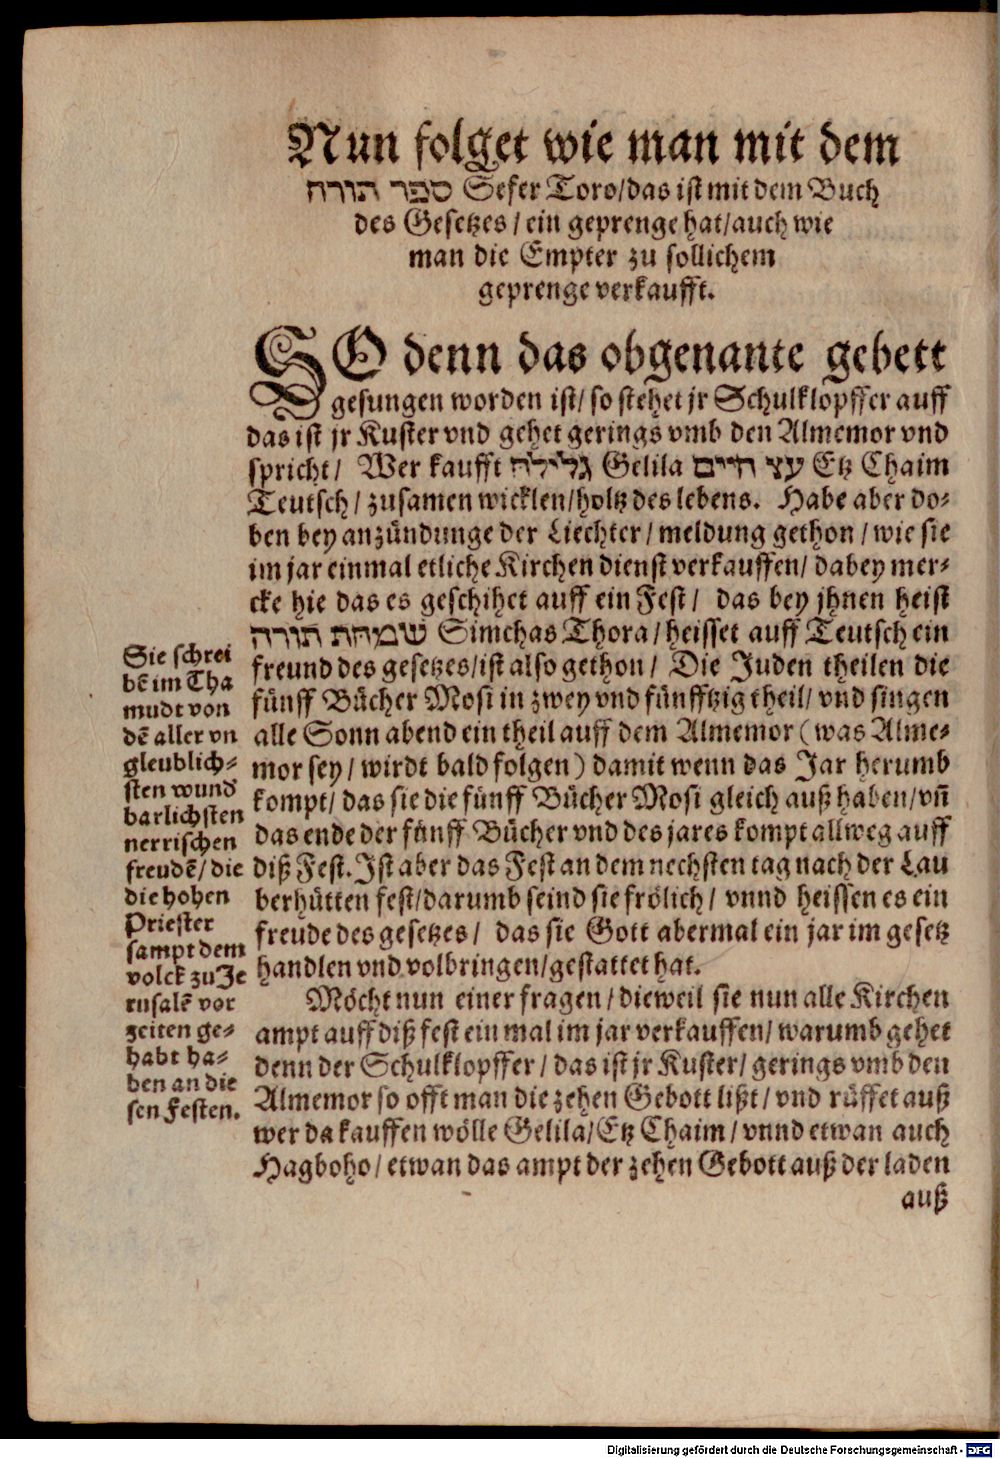 Nun folget wie man mit dem
ספר תורה Sefer Toro/das ist mit dem Buch
des Gesetzes / ein geprenge hat/auch wie
man die Empter zu sollichem
geprenge verkaufft.
SO denn das obgenante gebett
gesungen worden ist/ so stehet jr Schulklopffer auff
das ist jr Kuster vnd gehet gerings vmb den Almemor vnd
spricht/ Wer kaufft גלילה Gelila עצ חיים Etz Chaim
Teutsch/ zusamen wicklen/holtz des lebens. Habe aber do-
ben bey anzündunge der Liechter/ meldung gethon/ wie sie
im jar einmal etliche Kirchen dienst verkauffen/ dabey mer-
cke hie das es geschihet auff ein Fest/ das bey jhnen heist
שמחת תורה Simchas Thora/ heisset auff Teutsch ein
freund des gesetzes/ist also gethon/ Die Juden theilen die
fünff Bücher Mosi in zwey vnd fünfftzig theil/ vnd singen
alle Sonn abend ein theil auff dem Almemor (was Alme-
mor sey/ wirdt bald folgen) damit wenn das Jar herumb
kompt/ das sie die fünff Bücher Mosi gleich auß haben/ vñ
das ende der fünff Bücher vnd des jares kompt allweg auff
diß Fest. Ist aber das Fest an dem nechsten tag nach der Lau
berhütten fest/darumb seind sie frölich/ vnnd heissen es ein
freude des gesetzes/ das sie Gott abermal ein jar im gesetz
handlen vnd volbringen/gestattet hat.
Möcht nun einer fragen/ dieweil sie nun alle Kirchen
ampt auff diß fest ein mal im jar verkauffen/ warumb gehet
denn der Schulklopffer/ das ist jr Kuster/ gerings vmb den
Almemor so offt man die zehen Gebott lißt/ vnd rüffet auß
wer da kauffen wölle Gelila/Etz Chaim/ vnnd etwan auch
Hagboho/ etwan das ampt der zehen Gebott auß der laden
auß
Sie schrei
bẽ im Tha
mudt von
dẽ aller vn
gleublich-
sten wund
barlichsten
nerrischen
freudẽ/ die
die hohen
Priester
sampt dem
volck zu Je
rusalẽ vor
zeiten ge-
habt ha-
ben an die
sen Festen.
Digitalisierung gefördert durch die Deutsche Forschungsgemeinschaft - DFG